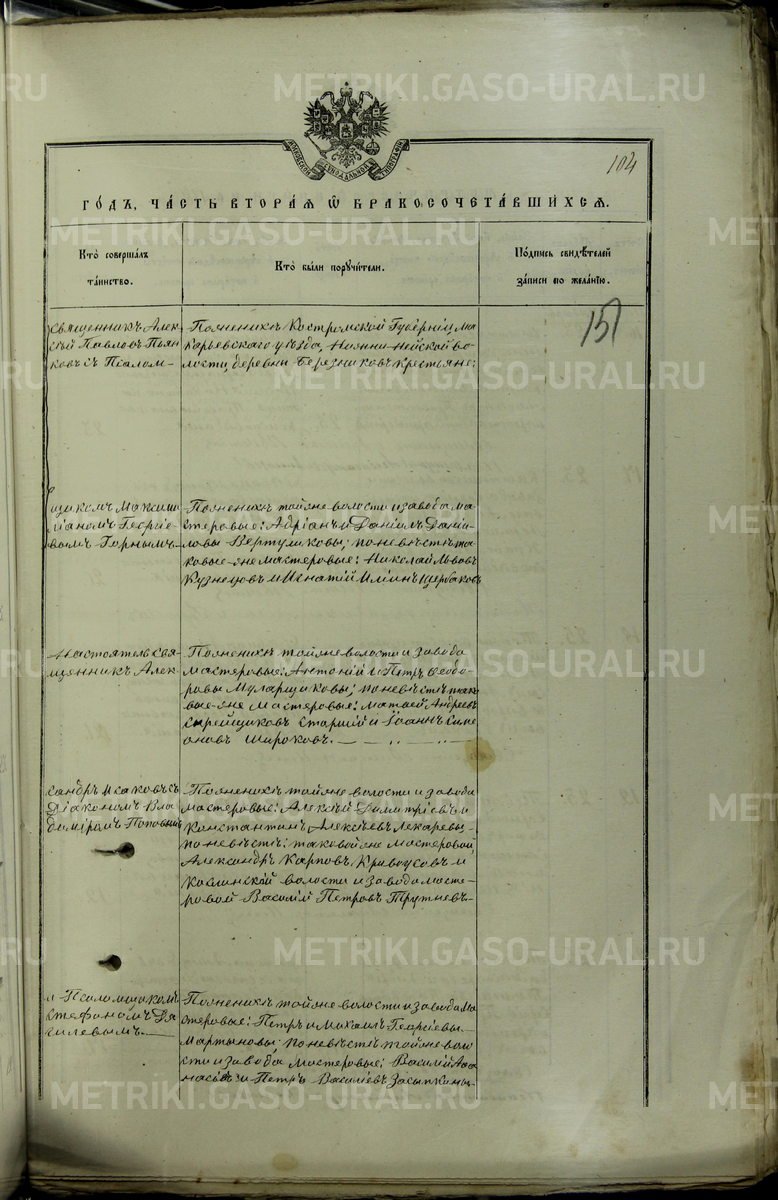 METRIKI.GASO-URAL.RU
104
МОСКОВСКОЙ СѴНОДАЛЬНОЙ ТИПОГРАФІИ
ГО́ДЪ, ЧА́СТЬ ВТОРА́Я Ѡ БРАКОСОЧЕТА́ВШИХСЯ.
Кто̀ соверша́лъ
та́инство.
Кто̀ бы́ли поручи́тели.
По́дпись свидѣ́телей
за́писи по жела́нію.
151
Священникъ Алек-
сѣй Павловъ Пьян-
ковъ съ Псалом-
По женихѣ Костромской Губерніи, Ма-
карьевскаго уѣзда, волости, деревни Березниковъ крестьяне:
щикомъ Максими-
ліаномъ Георгіе-
вымъ Горнымъ.
По женихѣ той же волости и завода ма-
стеровые: Адріанъ и Даніилъ Даніи-
ловы Вертуликовы; по невѣстѣ та-
ковые-же мастеровые: Николай Львовъ
Кузнецовъ и Игнатій Илiинъ Щербаковъ
Настоятель Свя-
щенникъ Алек-
По женихѣ той же волости и завода
мастеровые: Антоній и Петръ Ѳеодо-
ровы Муларщиковы; по невѣстѣ тако-
вые-же мастеровые: Матѳей Андреевъ
Сырейщиковъ старшій и Іоаннъ Симе-
оновъ Широковъ.
сандръ Исаковъ съ
Діакономъ Вла-
диміромъ Поповымъ
По женихѣ той же волости и завода
мастеровые: Алексѣй Димитріевъ и
Константинъ Алексѣевъ Лекаревы,
по невѣстѣ: таковой же мастеровой
Александръ Карповъ Кривоусовъ и
Каслинской волости и завода масте-
ровой Василій Петровъ Трутневъ.
и Псаломщикомъ
Стефаномъ Дя-
гилевымъ.
По женихѣ той же волости и завода Ма-
стеровые: Петръ и Михаилъ Георгіевы
Мартыновы; по невѣстѣ той же воло-
сти и завода мастеровые: Василій Аѳа-
насьевъ и Петръ Василіевъ Засыпкины.